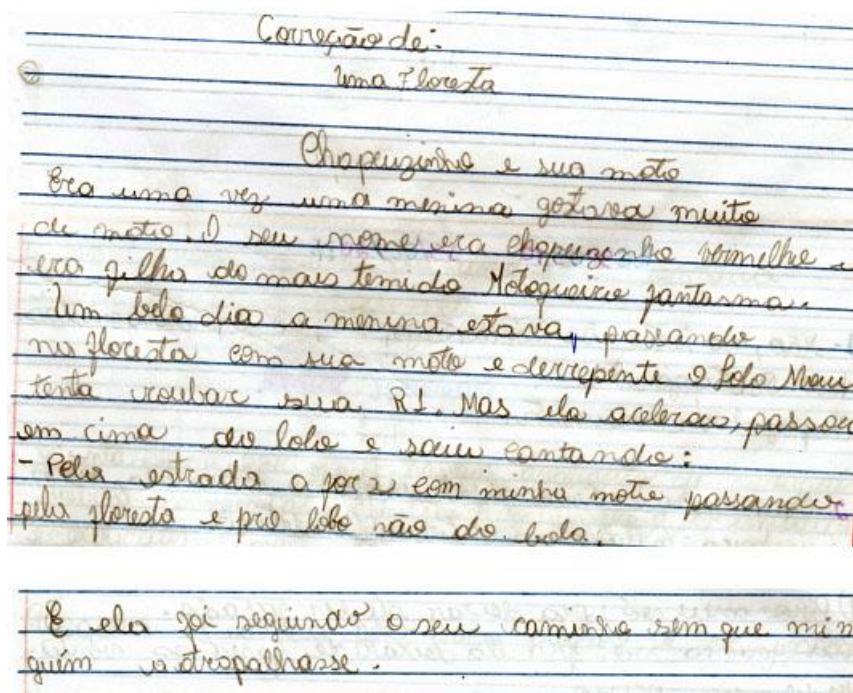 Correção de:
Uma Floresta
Chapeuzinho e sua moto
Era uma vez uma menina gostava muito
de moto. O seu nome era chapeuzinho vermelho e
era filha do mais temido Motoqueiro fantasma.
Um belo dia a menina estava, passando
na floresta com sua moto e derrepente o Lobo Mau
tenta roubar sua R1. Mas ela acelerou, passou
em cima do lobo e saiu cantando:
- Pela estrada a for com minha moto passando
pela floresta e pro lobo não do bola.
E ela foi seguindo o seu caminho sem que nin
guém atrapalhasse.